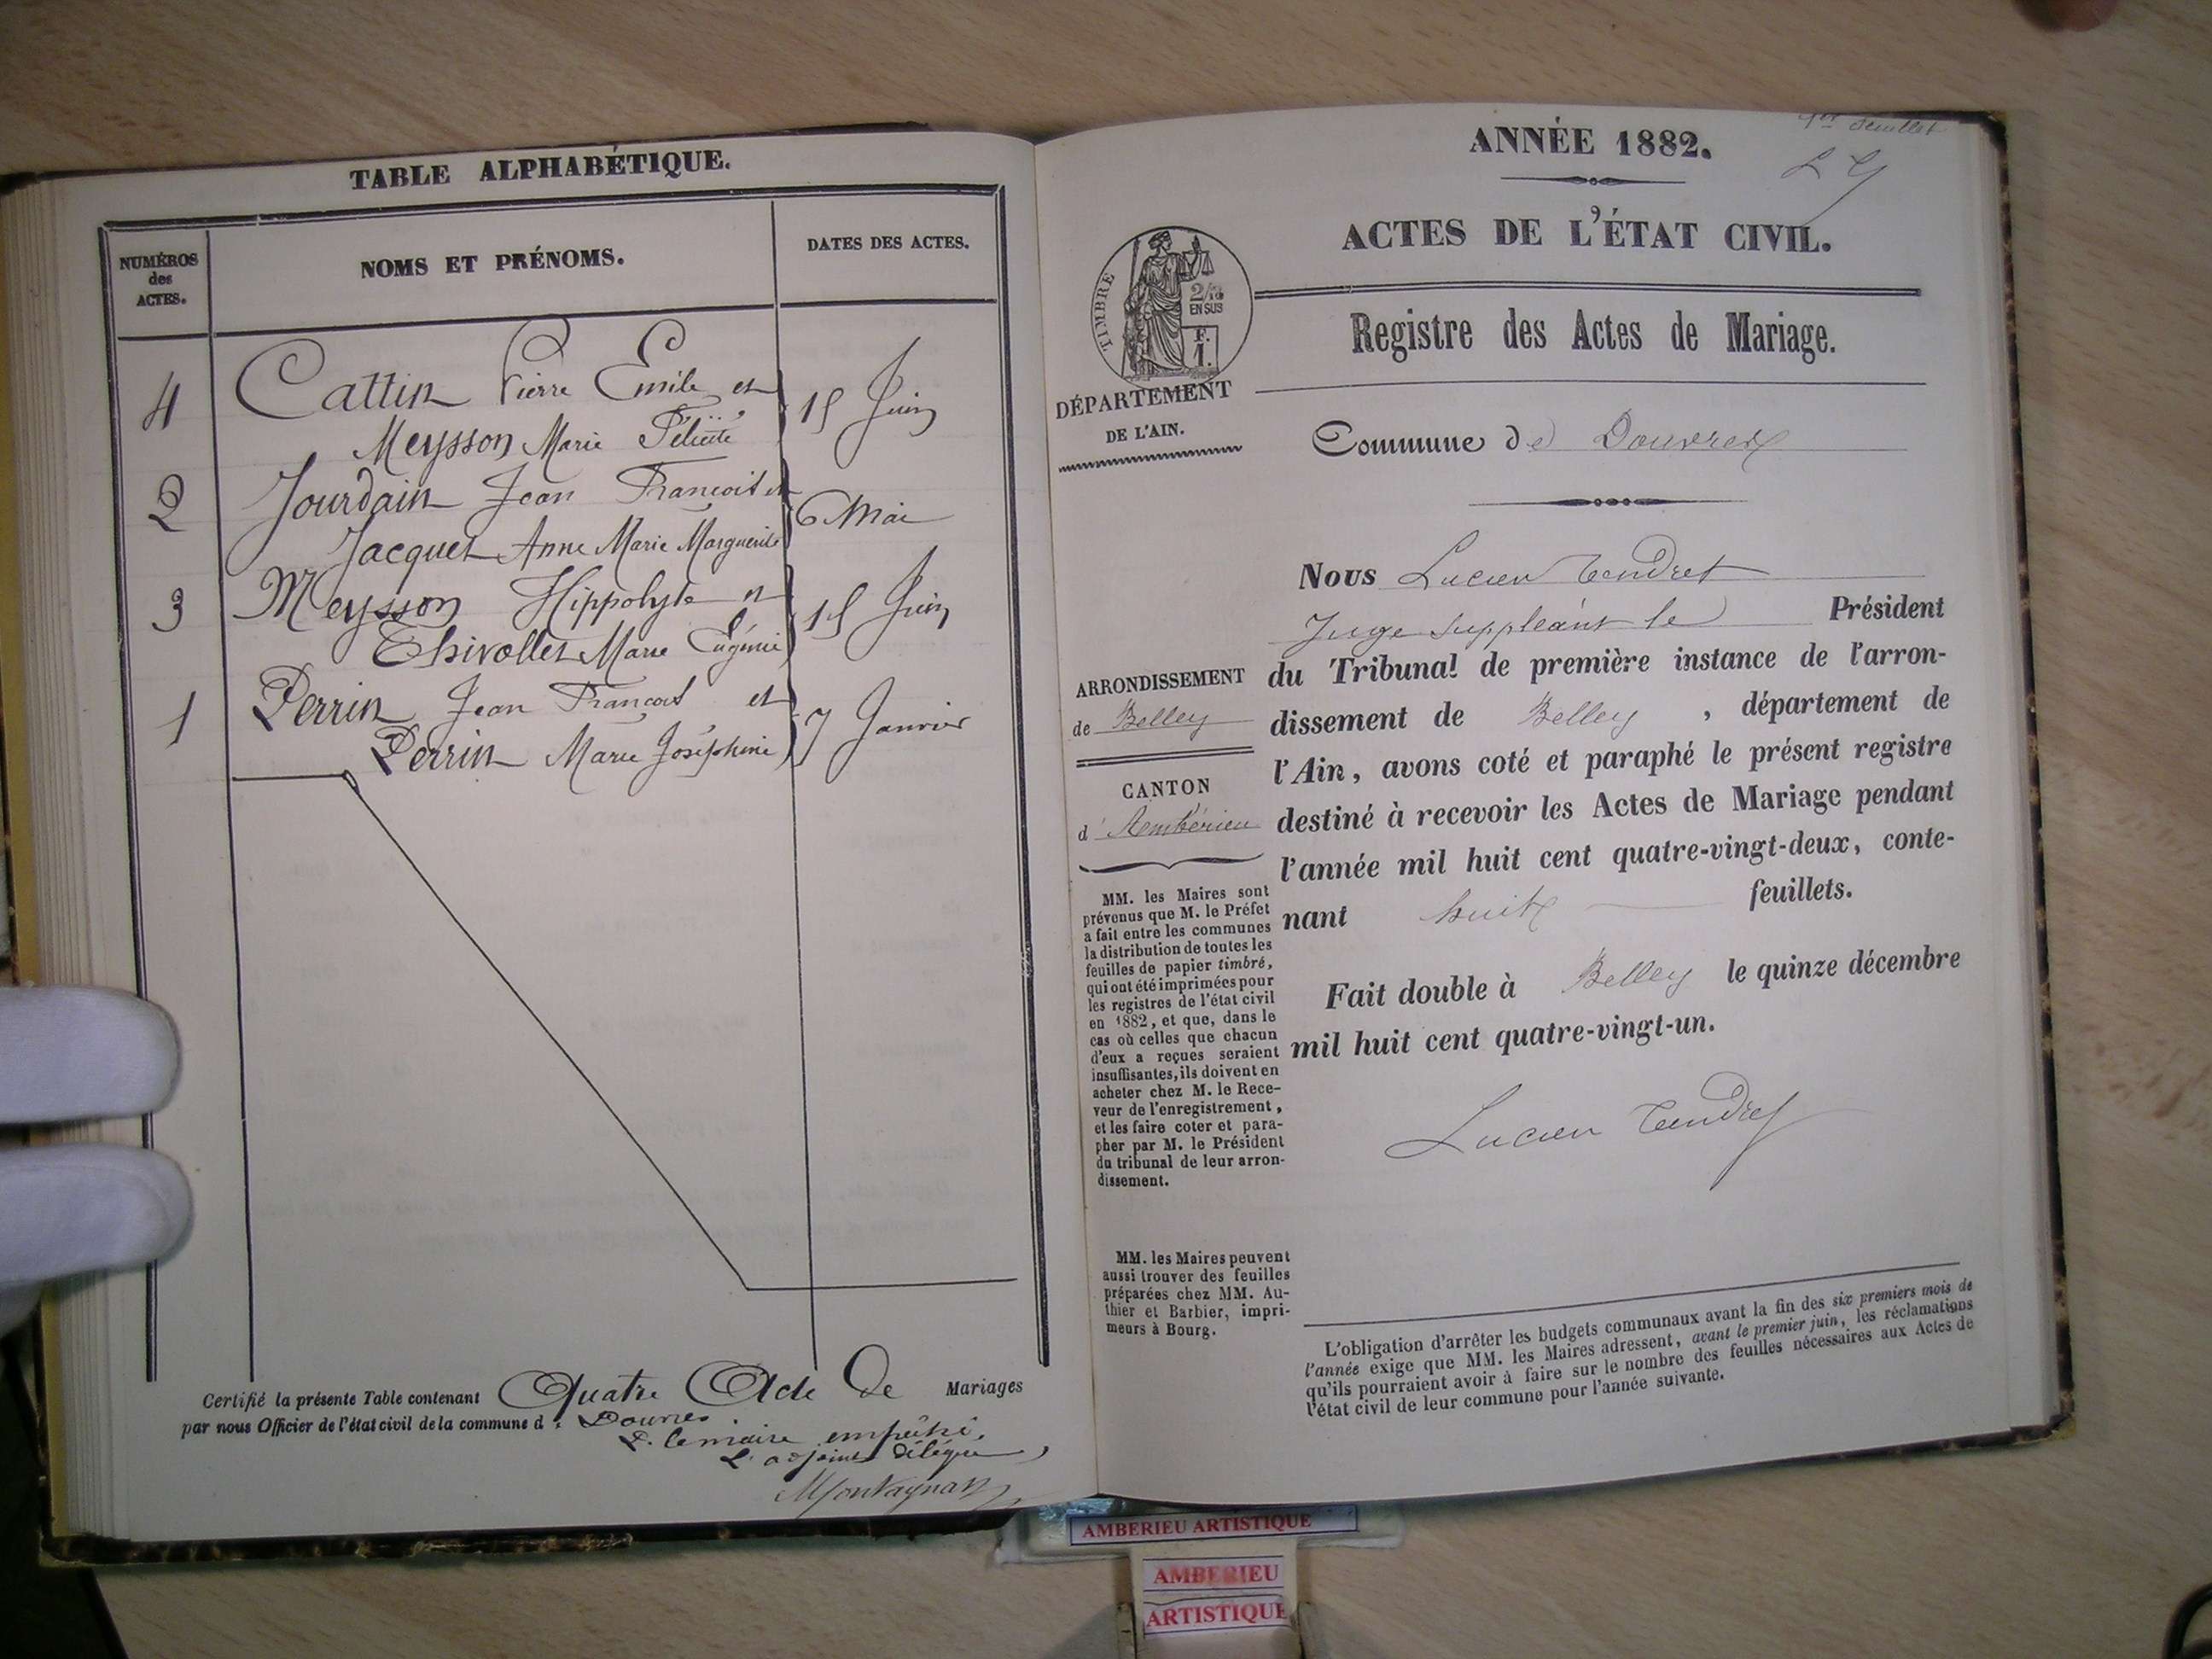 TABLE ALPHABÉTIQUE.
NUMÉROS
des
ACTES.
NOMS ET PRÉNOMS.
DATES DES ACTES.
4 Cattin Pierre Emile et
Meysson Marie Félicité
15 Juin
2 Jourdain Jean François et
Jacquet Anne Marie Marguerite
6 Mai
3 Meysson Hippolyte et
Thivollet Marie Eugénie
15 Juin
1 Perrin Jean François et
Perrin Marie Joséphine
7 Janvier
Certifié la présente Table contenant Quatre Acte De Mariages
par nous Officier de l'état civil de la commune d Douvres
P. le maire empêché,
L'adjoint délégué
ANNÉE 1882.
1er feuillet
ACTES DE L'ÉTAT CIVIL.
TIMBRE
2/10
EN SUS
F.
1.
Registre des Actes de Mariage.
DÉPARTEMENT
DE L'AIN.
Commune de Douvres
Nous Lucien Tendret
Juge suppléant le Président
du Tribunal de première instance de l'arron-
dissement de Belley, département de
l'Ain, avons coté et paraphé le présent registre
destiné à recevoir les Actes de Mariage pendant
l'année mil huit cent quatre-vingt-deux, conte-
nant huit feuillets.
Fait double à Belley le quinze décembre
mil huit cent quatre-vingt-un.
Lucien Tendret
ARRONDISSEMENT
de Belley
CANTON
d'Ambérieu
MM. les Maires sont
prévenus que M. le Préfet
a fait entre les communes
la distribution de toutes les
feuilles de papier timbré,
qui ont été imprimées pour
les registres de l'état civil
en 1882, et que, dans le
cas où celles que chacun
d'eux a reçues seraient
insuffisantes, ils doivent en
acheter chez M. le Rece-
veur de l'enregistrement,
et les faire coter et para-
pher par M. le Président
du tribunal de leur arron-
dissement.
MM. les Maires peuvent
aussi trouver des feuilles
préparées chez MM. Au-
thier et Barbier, impri-
meurs à Bourg.
L'obligation d'arrêter les budgets communaux avant la fin des six premiers mois de
l'année exige que MM. les Maires adressent, avant le premier juin, les réclamations
qu'ils pourraient avoir à faire sur le nombre des feuilles nécessaires aux Actes de
l'état civil de leur commune pour l'année suivante.
AMBERIEU ARTISTIQUE
AMBERIEU
ARTISTIQUE